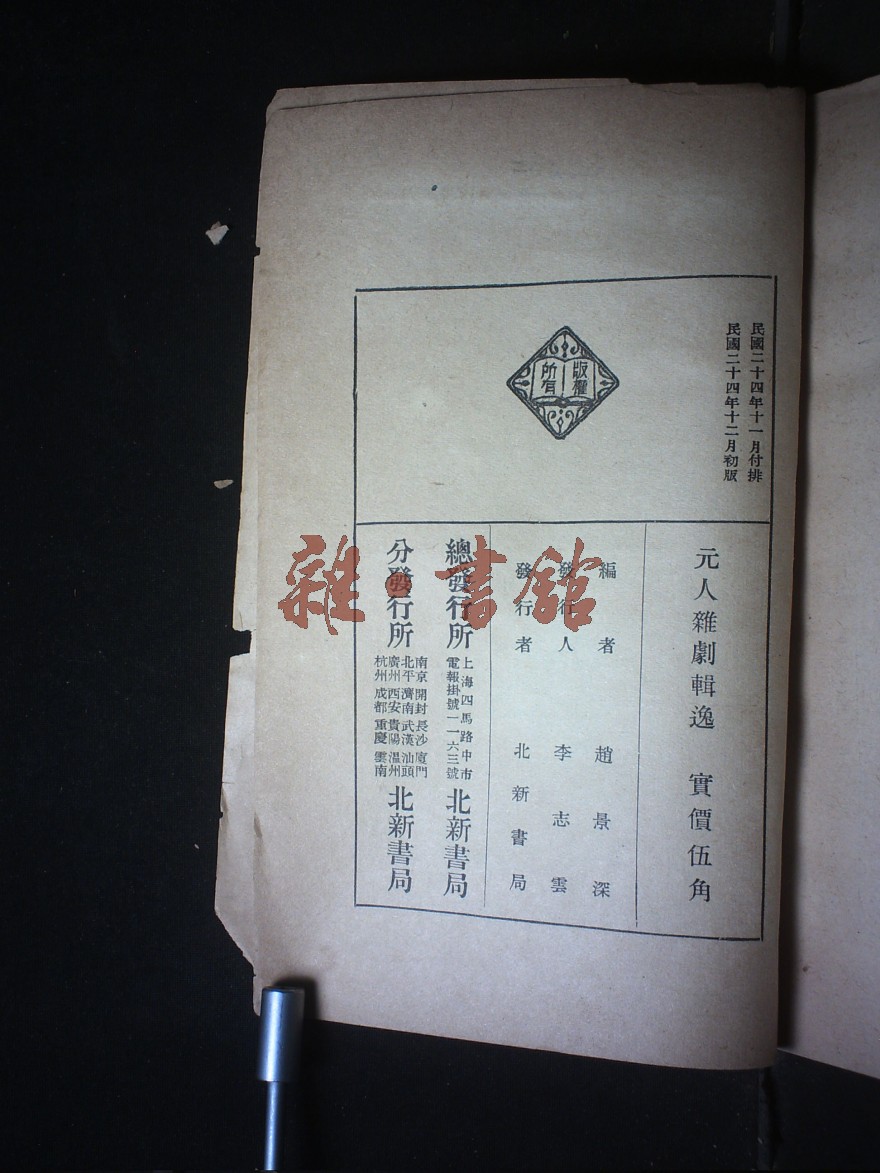 民國二十四年十一月付排
民國二十四年十二月初版
版權
所有
元人雜劇輯逸 實價伍角
編者 趙景深
發行人 李志雲
發行者 北新書局
總發行所 上海四馬路中市 電報掛號一一六三號 北新書局
分發行所
南京 開封 長沙 廈門
北平 濟南 武漢 汕頭
廣州 西安 貴陽 溫州
杭州 成都 重慶 雲南
北新書局
雜·書館